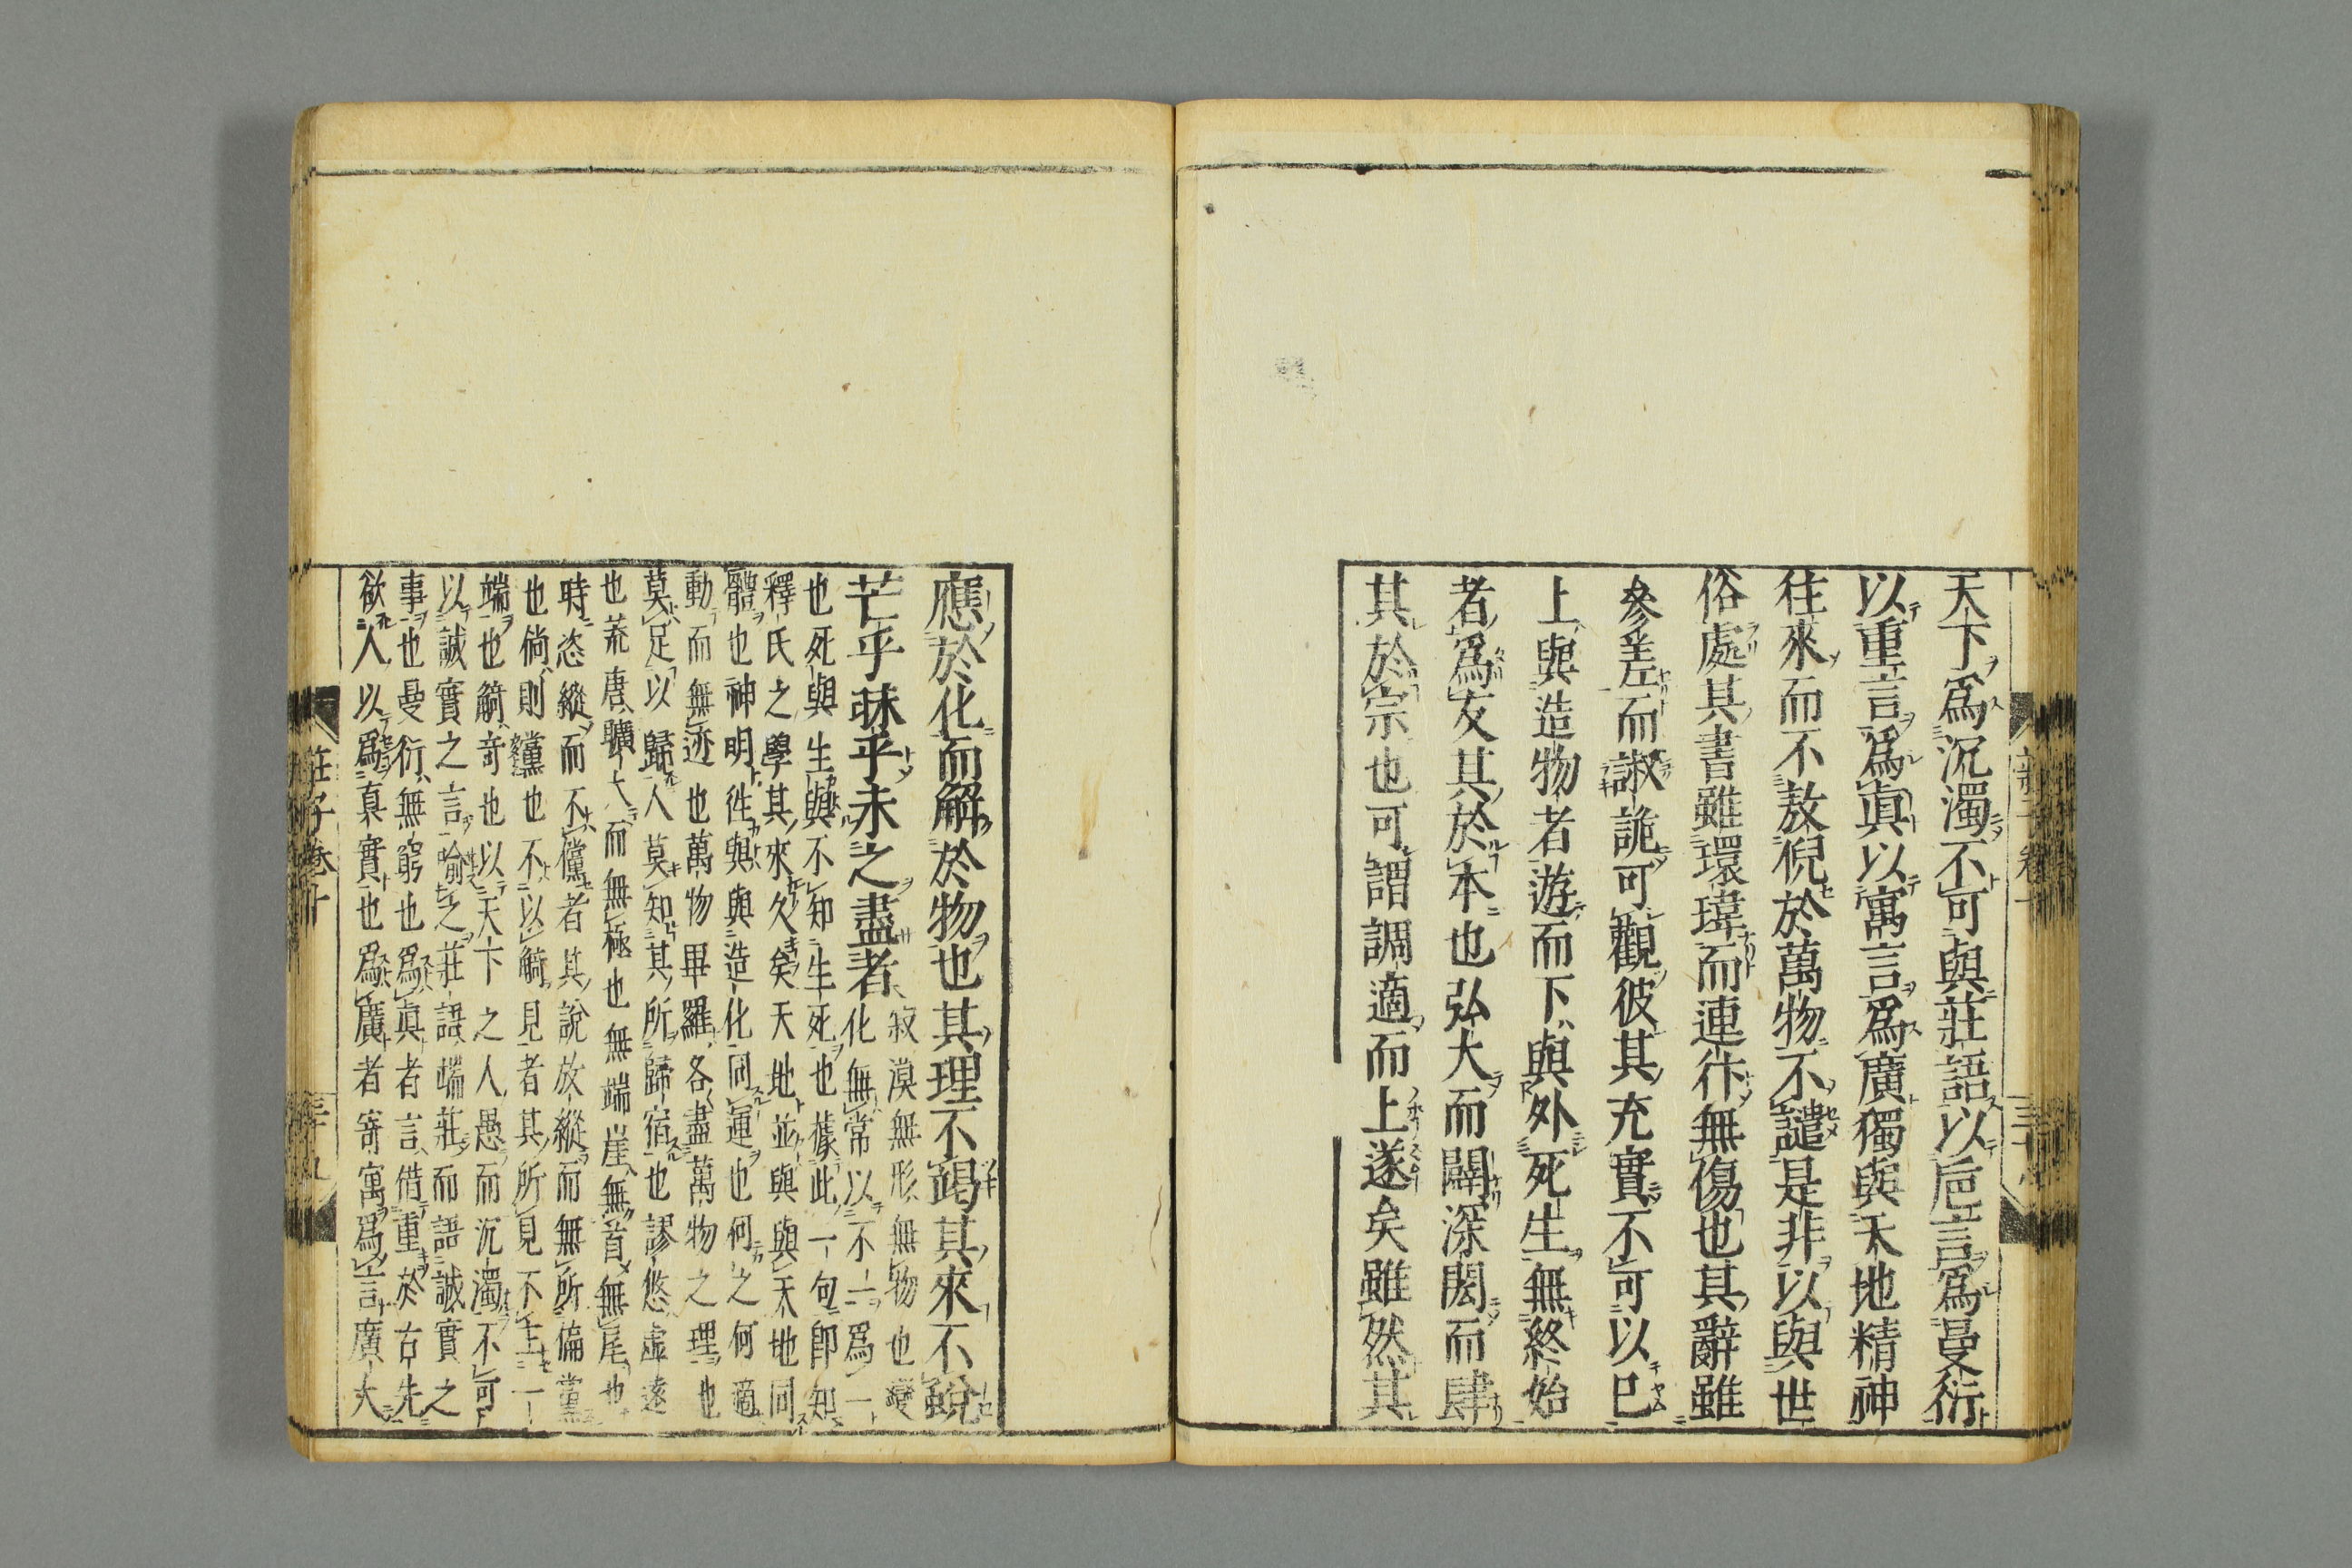 天下爲沉濁不可與莊語以巵言爲曼衍
以重言爲眞以寓言爲廣獨與天地精神
往來而不敖倪於萬物不譴是非以與世
俗處其書雖瓌瑋而連犿無傷也其辭雖
參差而諔詭可觀彼其充實不可以已
上與造物者遊而下與外死生無終始
者爲友其於本也弘大而闢深閎而肆
其於宗也可謂調適而上遂矣雖然其
應於化而解於物也其理不竭其來不蛻
芒乎昧乎未之盡者
寂漠無形無物也變
化無常以不一爲一
也死與生與不知生死也據此一句卽知
釋氏之學其來久矣天地並與與天地同
體也神明往與與造化同運也何之何適
動而無迹也萬物畢羅各盡萬物之理也
莫足以歸人莫知其所歸宿也謬悠虛遠
也荒唐曠大而無極也無端崖無首無尾也
時恣縱而不儻者其說放縱而無所偏黨
也倘則黨也不以觭見者其所見不主一
端也觭奇也以天下之人愚而沉濁不可
以誠實之言喻之莊語端莊而語誠實之
事也曼衍無窮也爲眞者言借重於古先
欲人以爲真實也爲廣者寄寓爲言廣大
莊子卷十